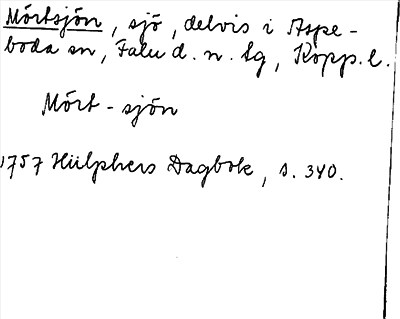 Mörtsjön, sjö, delvis i Aspe-
boda sn, Falu d. n. tg, Kopp. l.
Mört-sjön
1757 Hülphers Dagbok, s. 340.